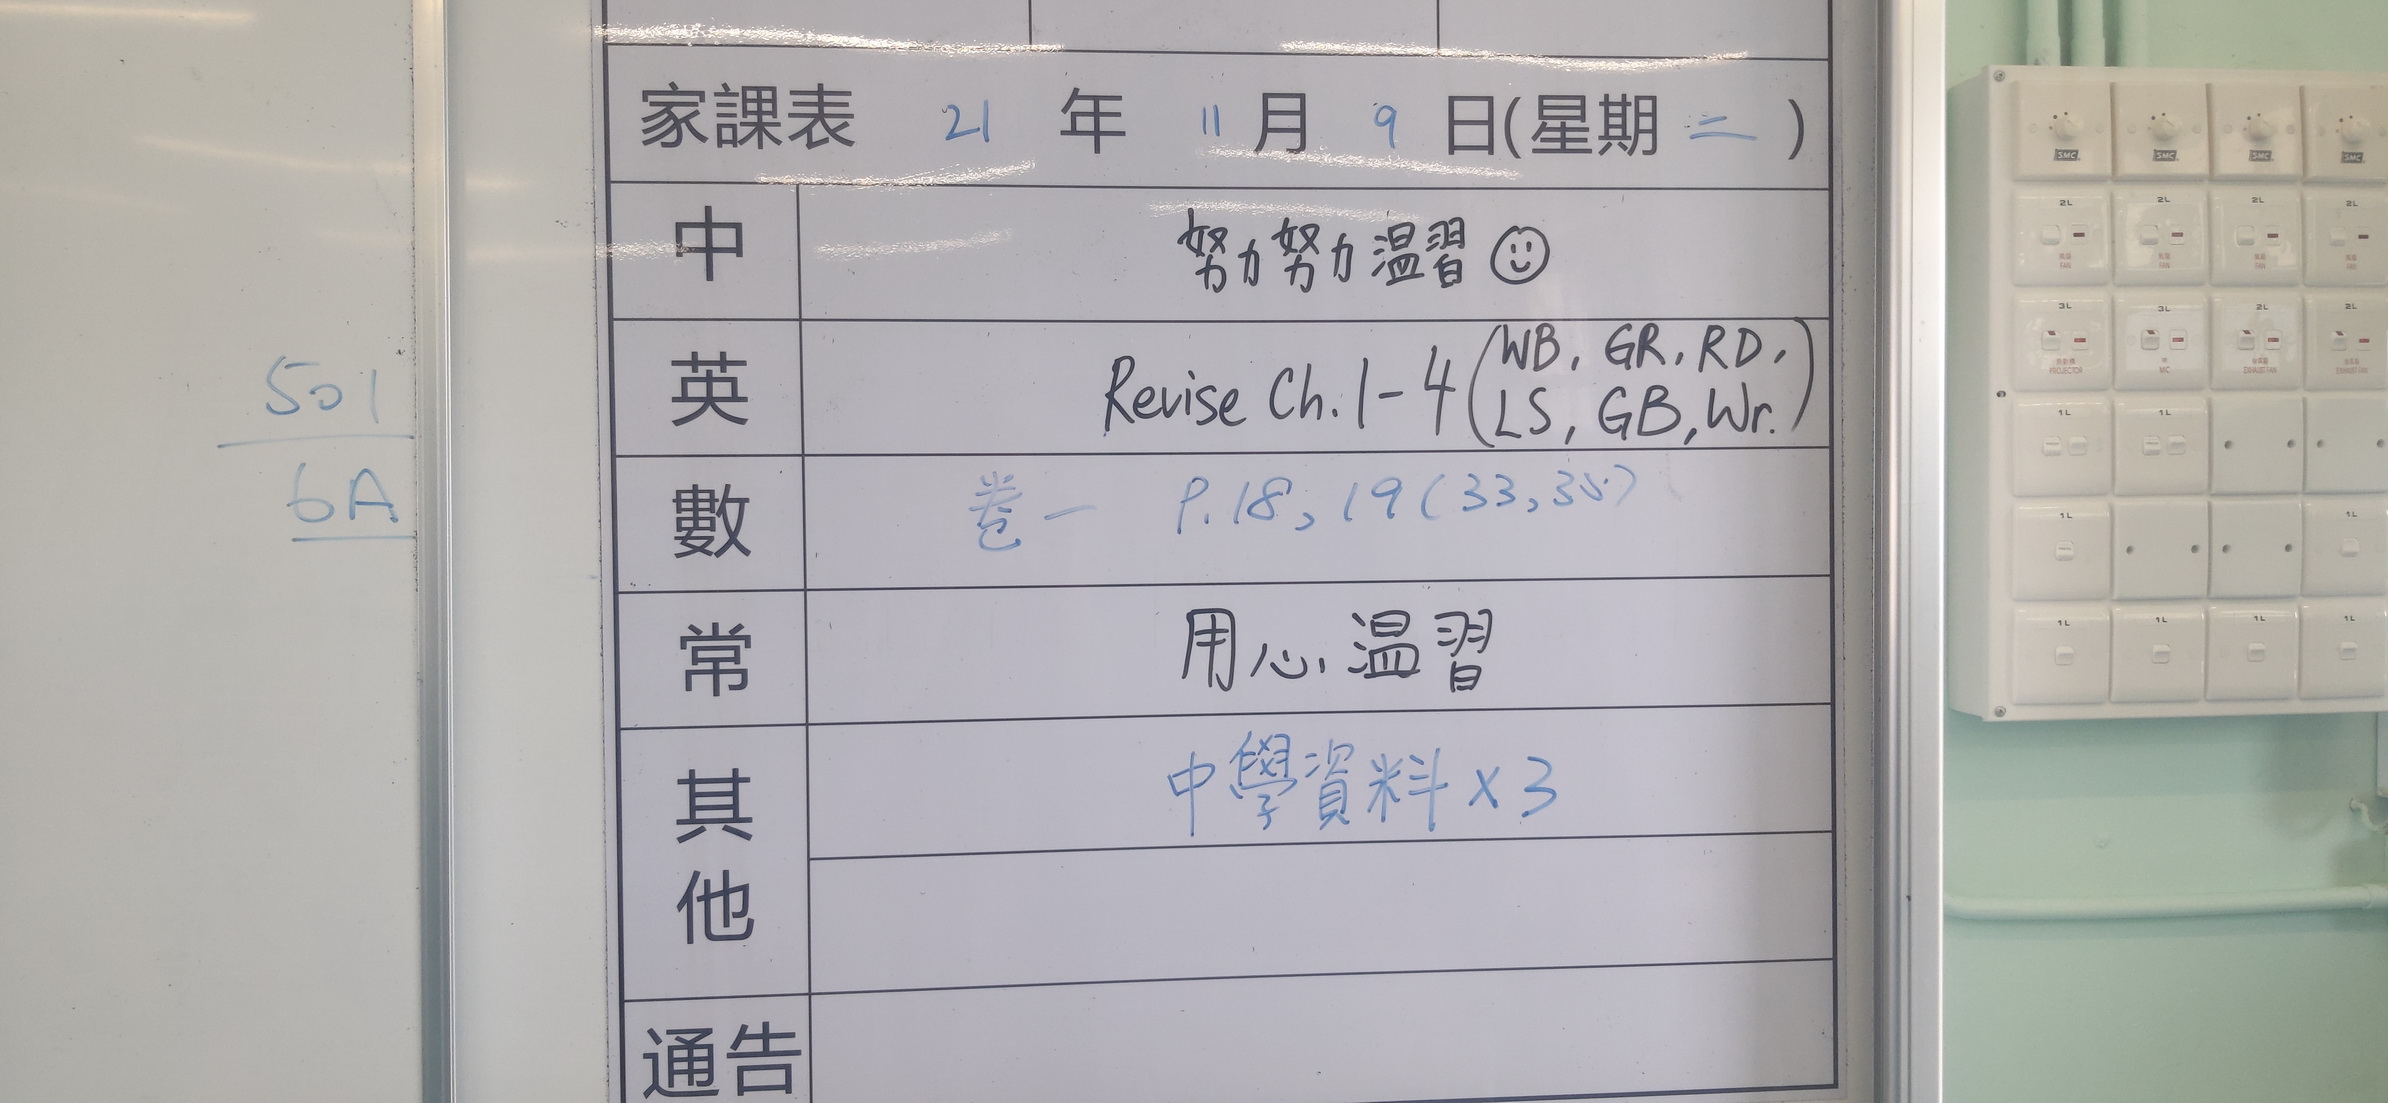 501
6A
家課表 21 年 11 月 9 日(星期 二 )
中 努力努力温習
英 Revise Ch. 1-4 (WB, GR, RD,
LS, GB, Wr.)
數 卷一 P.18, 19 (33, 35)
常 用心温習
其他 中學資料 x 3
通告
SMC SMC SMC SMC
2L 2L 2L 2L
FAN FAN FAN FAN
3L 3L 2L 2L
PROJECTOR MIC EXHAUST FAN EXHAUST FAN
1L 1L
1L 1L
1L 1L 1L 1L